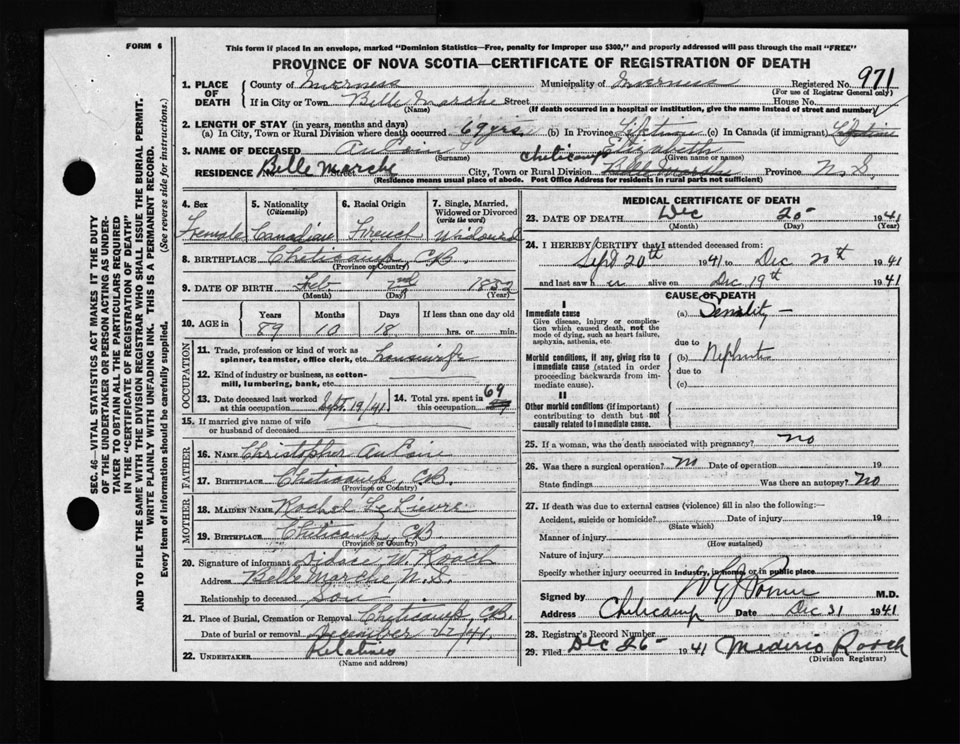 FORM 6
This form if placed in an envelope, marked "Dominion Statistics—Free, penalty for improper use $300," and properly addressed will pass through the mail "FREE"
PROVINCE OF NOVA SCOTIA—CERTIFICATE OF REGISTRATION OF DEATH
SEC. 46—VITAL STATISTICS ACT MAKES IT THE DUTY
OF THE UNDERTAKER OR PERSON ACTING AS UNDER-
TAKER TO OBTAIN ALL THE PARTICULARS REQUIRED
IN THE "CERTIFICATE OF REGISTRATION OF DEATH"
AND TO FILE THE SAME WITH THE DIVISION REGISTRAR WHO SHALL ISSUE THE BURIAL PERMIT.
WRITE PLAINLY WITH UNFADING INK. THIS IS A PERMANENT RECORD.
Every item of information should be carefully supplied. (See reverse side for instructions.)
1. PLACE OF DEATH County of Inverness Municipality of Inverness Registered No. 971
(For use of Registrar General only)
If in City or Town Belle Marche Street House No.
(Name) (If death occurred in a hospital or institution, give the name instead of street and number)
2. LENGTH OF STAY (in years, months and days)
(a) In City, Town or Rural Division where death occurred 69 yrs. (b) In Province Lifetime (c) In Canada (if immigrant) Lifetime
3. NAME OF DECEASED AuCoin Elizabeth
(Surname) (Given name or names)
RESIDENCE Belle Marche City, Town or Rural Division Cheticamp Belle Marche Province N.S.
(Residence means usual place of abode. Post Office Address for residents in rural parts not sufficient)
4. Sex Female
5. Nationality (Citizenship) Canadian
6. Racial Origin French
7. Single, Married, Widowed or Divorced (write the word) Widowed
8. BIRTHPLACE Cheticamp C.B.
(Province or Country)
9. DATE OF BIRTH Feb. 2nd 1852
(Month) (Day) (Year)
10. AGE in Years Months Days If less than one day old
89 10 18 hrs. or min.
OCCUPATION
11. Trade, profession or kind of work as spinner, teamster, office clerk, etc. housewife
12. Kind of industry or business, as cotton-mill, lumbering, bank, etc.
13. Date deceased last worked at this occupation Sept. 19/41
14. Total yrs. spent in this occupation 69
15. If married give name of wife or husband of deceased
FATHER
16. NAME Christopher AuCoin
17. BIRTHPLACE Cheticamp, C.B.
(Province or Country)
MOTHER
18. MAIDEN NAME Rachel LeLievre
19. BIRTHPLACE Cheticamp, CB
(Province or Country)
20. Signature of informant W. Roach
Address Belle Marche, N.S.
Relationship to deceased Son
21. Place of Burial, Cremation or Removal Cheticamp, C.B.
Date of burial or removal December 22/41
22. UNDERTAKER Relatives
(Name and address)
MEDICAL CERTIFICATE OF DEATH
23. DATE OF DEATH Dec 20 1941
(Month) (Day) (Year)
24. I HEREBY CERTIFY that I attended deceased from:
Sept 20th 1941 to Dec 20th 1941
and last saw her alive on Dec. 19th 1941
CAUSE OF DEATH
I
Immediate cause
Give disease, injury or complication which caused death, not the mode of dying, such as heart failure, asphyxia, asthenia, etc.
(a) Senility
due to
Morbid conditions, if any, giving rise to immediate cause (stated in order proceeding backwards from immediate cause).
(b) Nephritis
due to
(c)
II
Other morbid conditions (if important) contributing to death but not causally related to immediate cause.
25. If a woman, was the death associated with pregnancy? No
26. Was there a surgical operation? No Date of operation 19
State findings Was there an autopsy? No
27. If death was due to external causes (violence) fill in also the following:—
Accident, suicide or homicide? Date of injury 19
(State which)
Manner of injury
(How sustained)
Nature of injury
Specify whether injury occurred in industry, in home, or in public place
Signed by M.D.
Address Cheticamp Date Dec 31 1941
28. Registrar's Record Number
29. Filed Dec 26 1941 Mederic Roach
(Division Registrar)